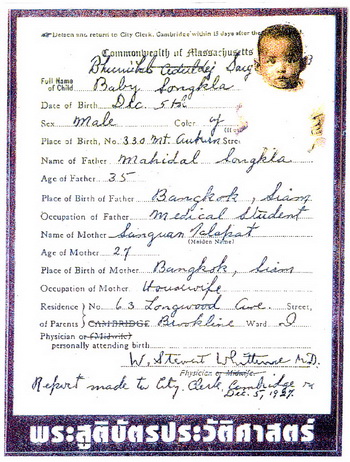 Detach and return to City Clerk, Cambridge within 15 days after the
Commonwealth of Massachusetts
Full Name of Child Baby Songkla
Date of Birth Dec. 5th
Sex Male Color y
Place of Birth, No. 330 Mt. Auburn Street
Name of Father Mahidal Songkla
Age of Father 35
Place of Birth of Father Bangkok, Siam
Occupation of Father Medical Student
Name of Mother Sanguan Talapat
(Maiden Name)
Age of Mother 27
Place of Birth of Mother Bangkok, Siam
Occupation of Mother Housewife
Residence of Parents No. 63 Longwood Ave. Street,
CAMBRIDGE Brookline Ward
Physician or (Midwife)
personally attending birth
W. Stewart Whittemore M.D.
Physician or Midwife.
Report made to City Clerk, Cambridge
Dec. 5, 1927.
พระสูติบัตรประวัติศาสตร์